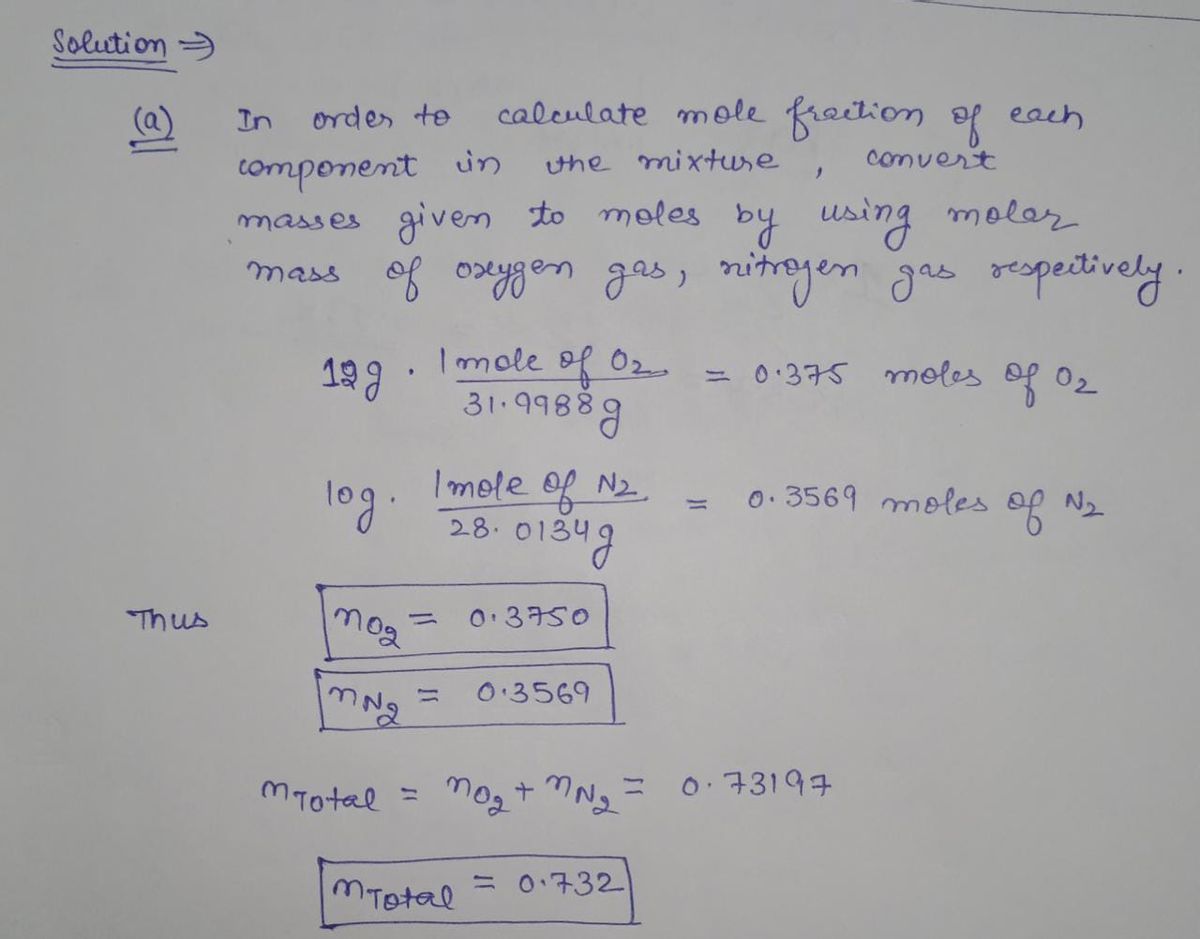 Solution ⇒
(a) In order to calculate mole fraction of each
component in the mixture, convert
masses given to moles by using molar
mass of oxygen gas, nitrogen gas respectively.
12g · 1 mole of O₂ / 31.9988g = 0.375 moles of O₂
10g · 1 mole of N₂ / 28.0134g = 0.3569 moles of N₂
Thus nO₂ = 0.3750
nN₂ = 0.3569
nTotal = nO₂ + nN₂ = 0.73197
nTotal = 0.732